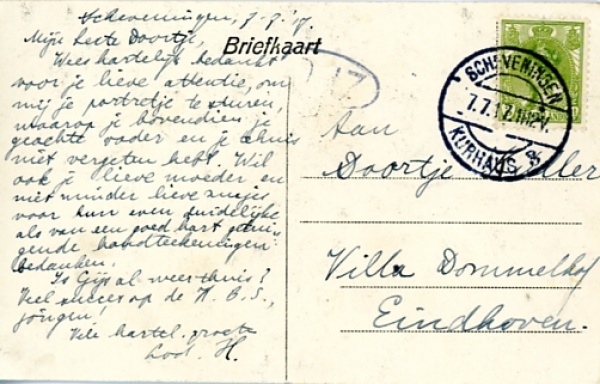 Scheveningen, 7-7-'17.
Mijn beste Doortje,
Briefkaart
Wees hartelijk bedankt
voor je lieve attentie, om
mij je portretje te sturen,
waarop je bovendien je
geachte vader en je thuis
niet vergeten hebt. Wil
ook je lieve moeder en
niet minder lieve zusjes
voor hun even duidelijke
als van een goed hart getui-
gende handteekeningen
bedanken.
Is Gijs al weer thuis?
Veel succes op de H.B.S.,
jongen!
Vele hartel. groeten
Lod. H.
SCHEVENINGEN
7.7.17
KURHAUS
Aan
Doortje
Villa Dommelhof
Eindhoven.